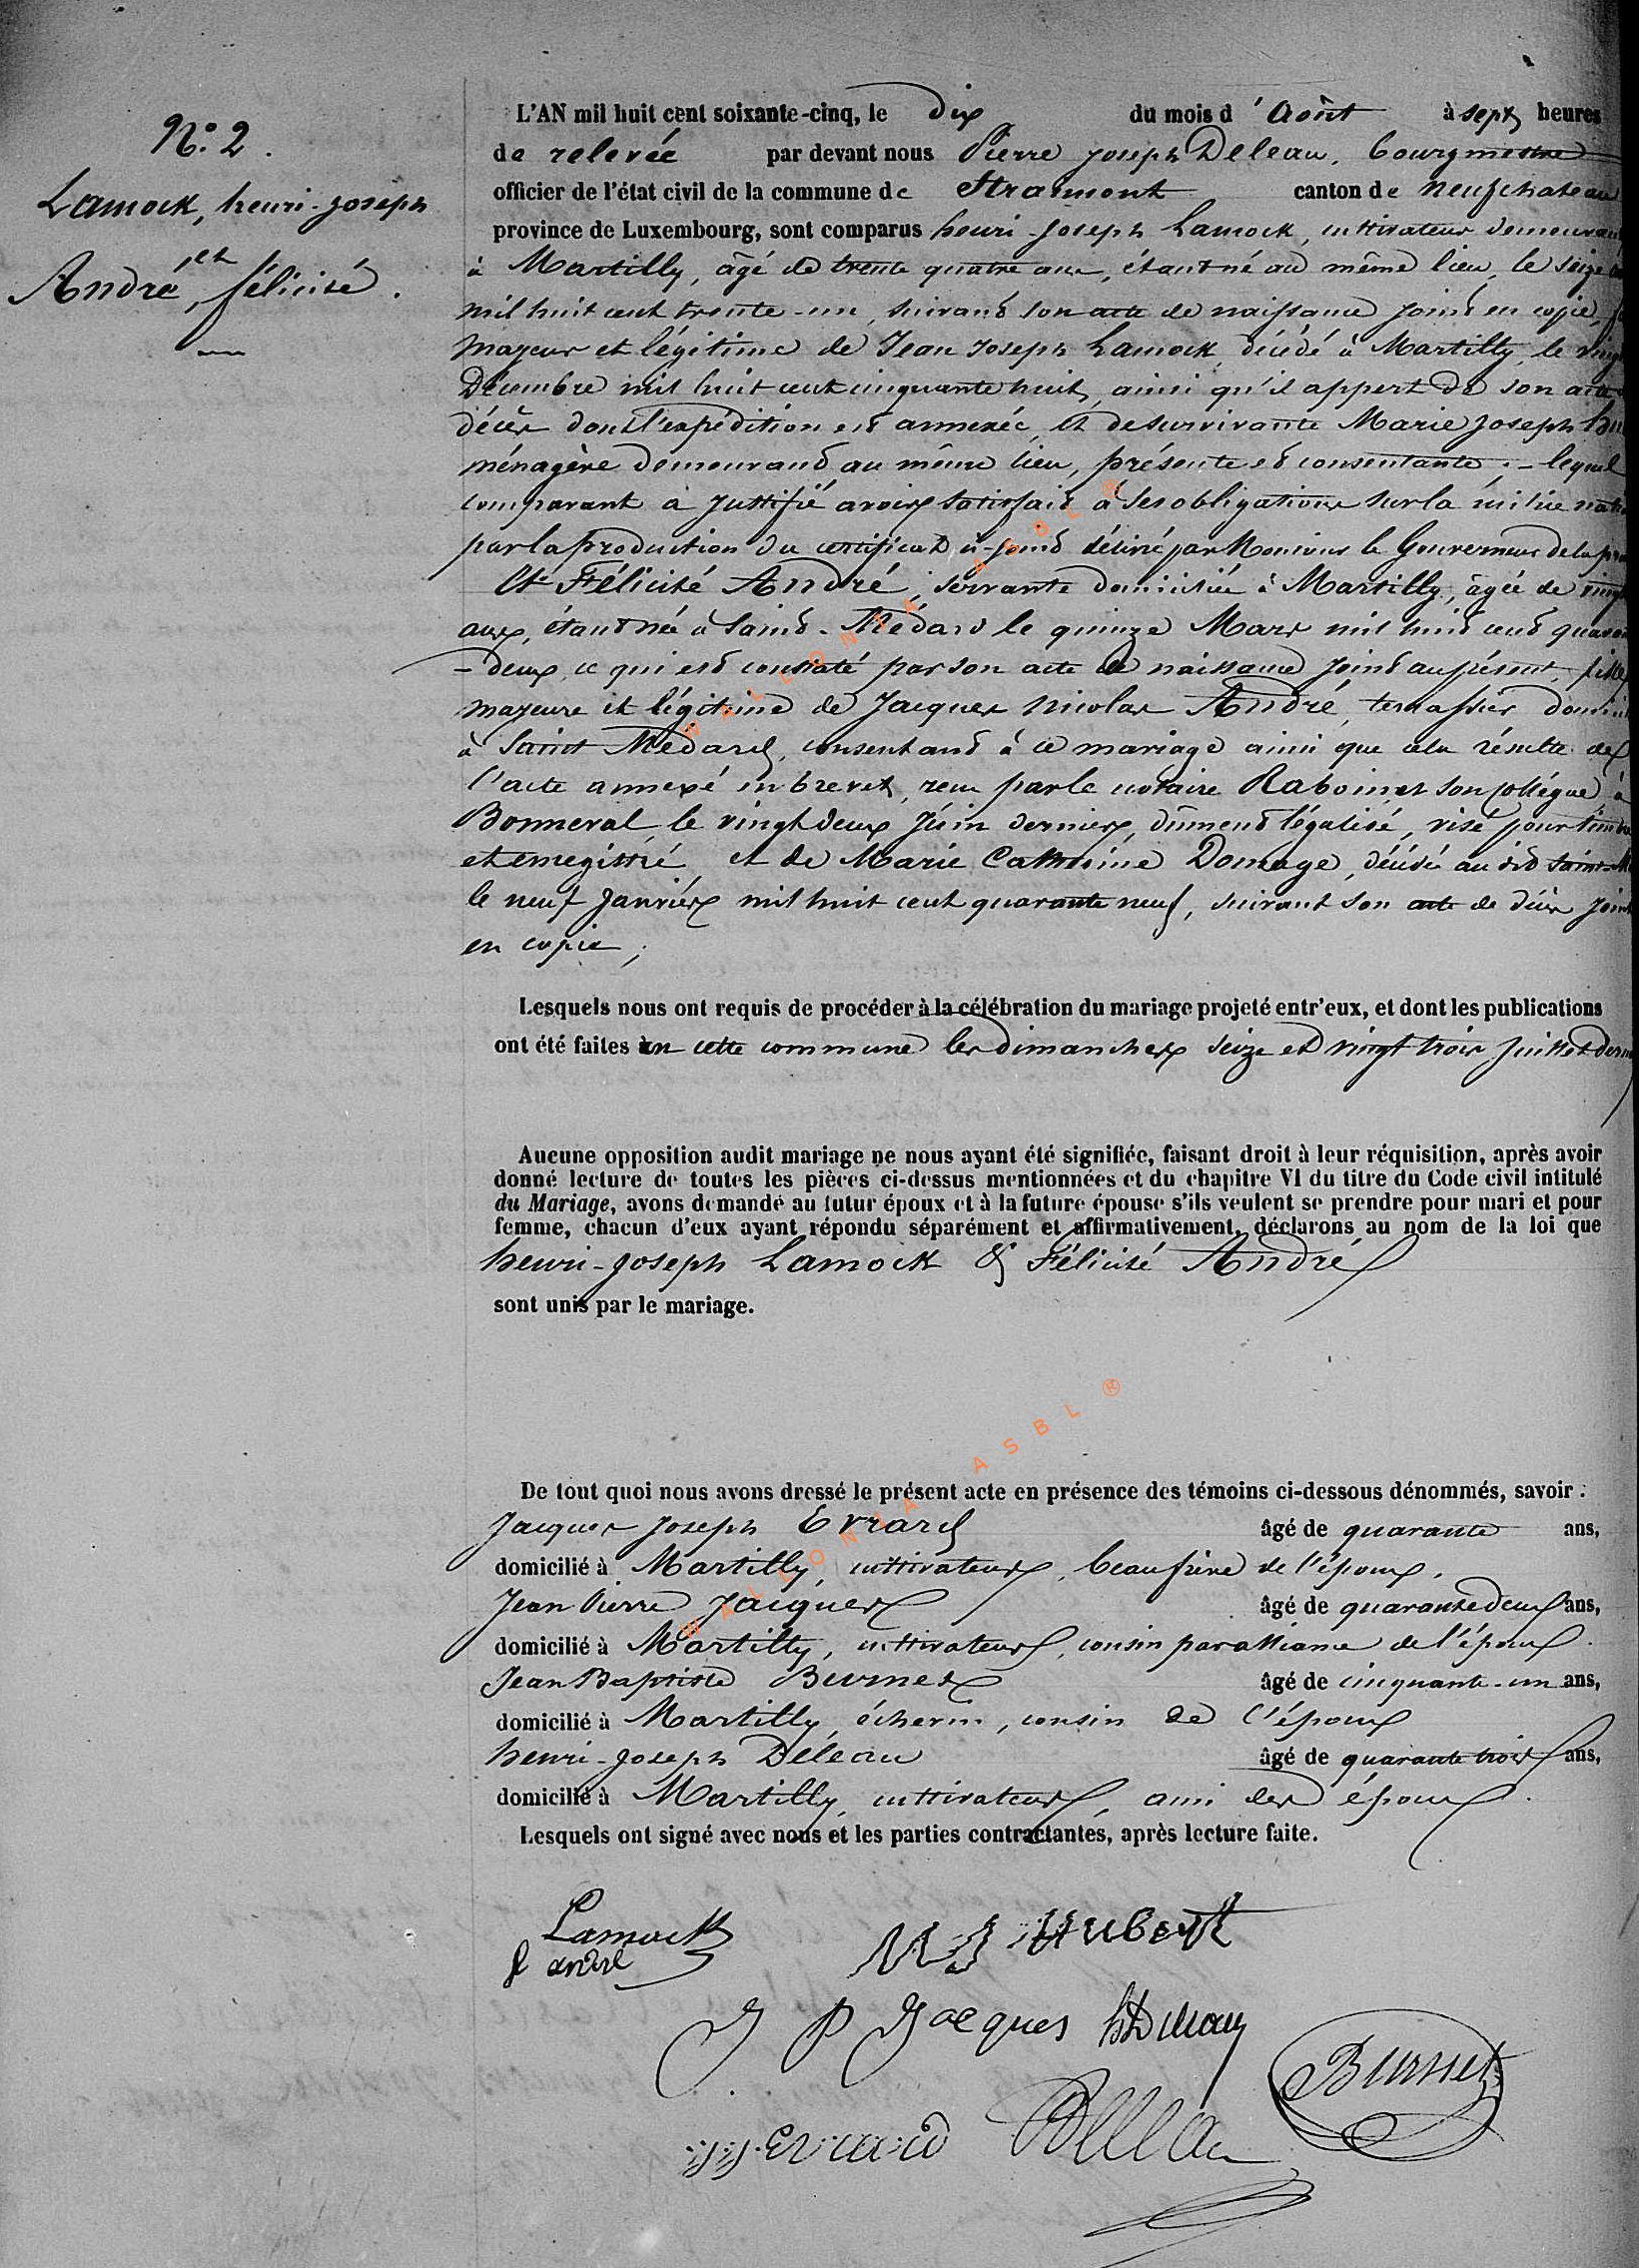 N.° 2.
Lamock, henri-joseph
et
André, félicité.
L'AN mil huit cent soixante-cinq, le dix du mois d'Août à sept heures
de relevée par devant nous Pierre joseph Deleau, bourgmestre
officier de l'état civil de la commune de Straimont canton de neufchateau
province de Luxembourg, sont comparus henri-joseph Lamock, cultivateur demeurant
à Martilly, âgé de trente quatre ans, étant né au même lieu, le seize
mil huit cent trente-un, suivant son acte de naissance joint en copie,
majeur et légitime de Jean Joseph Lamock, décédé à Martilly, le
Décembre mil huit cent cinquante huit, ainsi qu'il appert de son acte
décès dont l'expédition est annexée, et de survivante Marie joseph
ménagère demeurant au même lieu, présente et consentante. - lequel
comparant a justifié avoir satisfait à ses obligations sur la milice
par la production du certificat ci-joint délivré par Monsieur le Gouverneur de la
Et Félicité André, servante domiciliée à Martilly, âgée de
ans, étant née à Saint-Médard le quinze Mars mil huit cent
-deux, ce qui est constaté par son acte de naissance joint au présent, fille
majeure et légitime de Jacques nicolas André, terrassier
à Saint Médard, consentant à ce mariage ainsi que cela résulte de
l'acte annexé in brevet, reçu par le notaire Raboin et son collégue, à
Bonneval, le vingt deux Juin dernier, dûment légalisé, visé pour timbre
et enregistré et de Marie Catherine Domage, décédée au dit Saint-
le neuf Janvier mil huit cent quarante neuf, suivant son acte de décès joint
en copie;
Lesquels nous ont requis de procéder à la célébration du mariage projeté entr'eux, et dont les publications
ont été faites en cette commune les dimanches seize et vingt trois juillet
Aucune opposition audit mariage ne nous ayant été signifiée, faisant droit à leur réquisition, après avoir
donné lecture de toutes les pièces ci-dessus mentionnées et du chapitre VI du titre du Code civil intitulé
du Mariage, avons demandé au futur époux et à la future épouse s'ils veulent se prendre pour mari et pour
femme, chacun d'eux ayant répondu séparément et affirmativement, déclarons au nom de la loi que
henri-joseph Lamock & Félicité André
sont unis par le mariage.
De tout quoi nous avons dressé le présent acte en présence des témoins ci-dessous dénommés, savoir :
Jacques joseph Evrard âgé de quarante ans,
domicilié à Martilly, cultivateur, beaufrère de l'époux,
Jean Pierre Jacques âgé de quarante deux ans,
domicilié à Martilly, cultivateur, cousin par alliance de l'époux.
Jean Baptiste Burnet âgé de cinquante-un ans,
domicilié à Martilly, échevin, cousin de l'époux
henri-joseph Deleau âgé de quarante trois ans,
domicilié à Martilly, cultivateur, ami des époux.
Lesquels ont signé avec nous et les parties contractantes, après lecture faite.
Lamock
f andré
M J Hubert
J P Jacques
Burnet
JJ Evrard
WALLONIA ASBL ®
WALLONIA ASBL ®